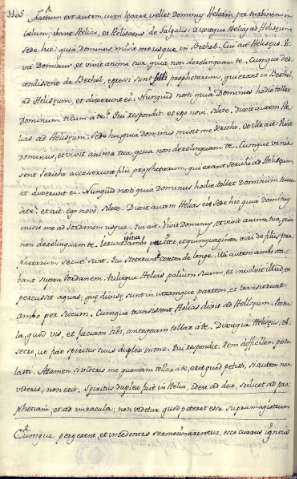 Factum est autem cum levare vellet Dominus Heliam per turbinem in
cælum, ibant Helias, et Heliseus de Galgalis. Dixitque Helias ad Heliseum
sede hic: quia Dominus misit me usque in Bethel. Cui ait Heliseus. Vi-
vit Dominus, et vivit anima tua, quia non derelinquam te. Cumque des-
cendissent Bethel, egressi sunt filii prophetarum, qui erant in Bethel
ad Heliseum, et dixerunt ei: Numquid nosti quia Dominus hodie tollet
dominum tuum a te? Qui respondit: et ego novi. Silete. Dixit autem He-
lias ad Heliseum. Sede hic quia Dominus misit me Jericho. Et ille ait. Vivit
Dominus, et vivit anima tua, quia non derelinquam te. Cumque venis-
sent Jericho accesserunt filii prophetarum, qui erant Jericho ad Heliseum,
et dixerunt ei. Numquid nosti quia Dominus hodie tollet dominum tuum
a te? et ait: ego novi. Silete. Dixit autem Helias: sede hic quia Dominus
misit me ad Jordanem usque. Qui ait. Vivit Dominus, et vivit anima tua, quia
non derelinquam te. ierunt ambo pariter, et quinquaginta viri de filiis pro-
phetarum secuti sunt. Qui steterunt contra de longe. Illi autem ambo sta-
bant super Jordanem. Tulitque Helias palium suum, et involvit illud, et
percussit aquas, quæ divisæ sunt in utramque partem, et transierunt
ambo per siccum. Cumque transissent Helias dixit ad Heliseum. Postu-
la, quod vis, et faciam tibi, antequam tollar a te. Dixitque Heliseus. ob-
secro, ut fiat spiritus tuus duplex in me. Qui respondit. Rem difficilem postu-
lasti. Attamen si videris me quando tollar a te, erit quod petisti, si autem non
videris, non erit. Spiritus duplex fuit in Helia,
phetiam, et ad miracula; non videtur quod peteret esse supra magistrum
Cumque pergerent, et incedentes sermocinarentur, ecce currus igneus